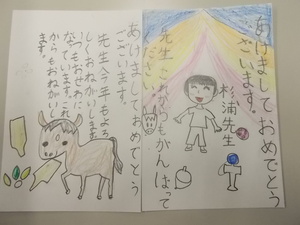 あけましておめでとう
ございます。
杉浦先生
先生これからもがんばって
ください
あけましておめでとう
ございます。
先生今年もよろ
しくおねがいします
いつもおせわに
なっています。これ
からもおねがいし
ます。